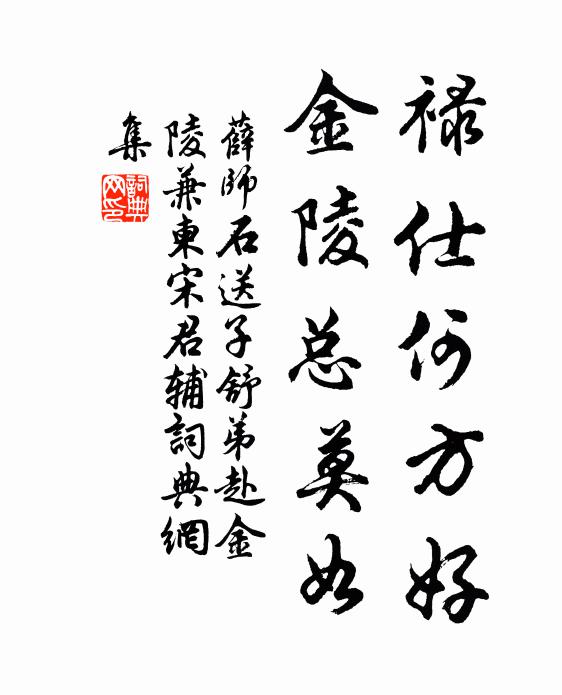 禄仕何方好
金陵总莫如
薛師石送子舒弟赴金
陵兼東宋君輔詞典網
集
詞典
网印